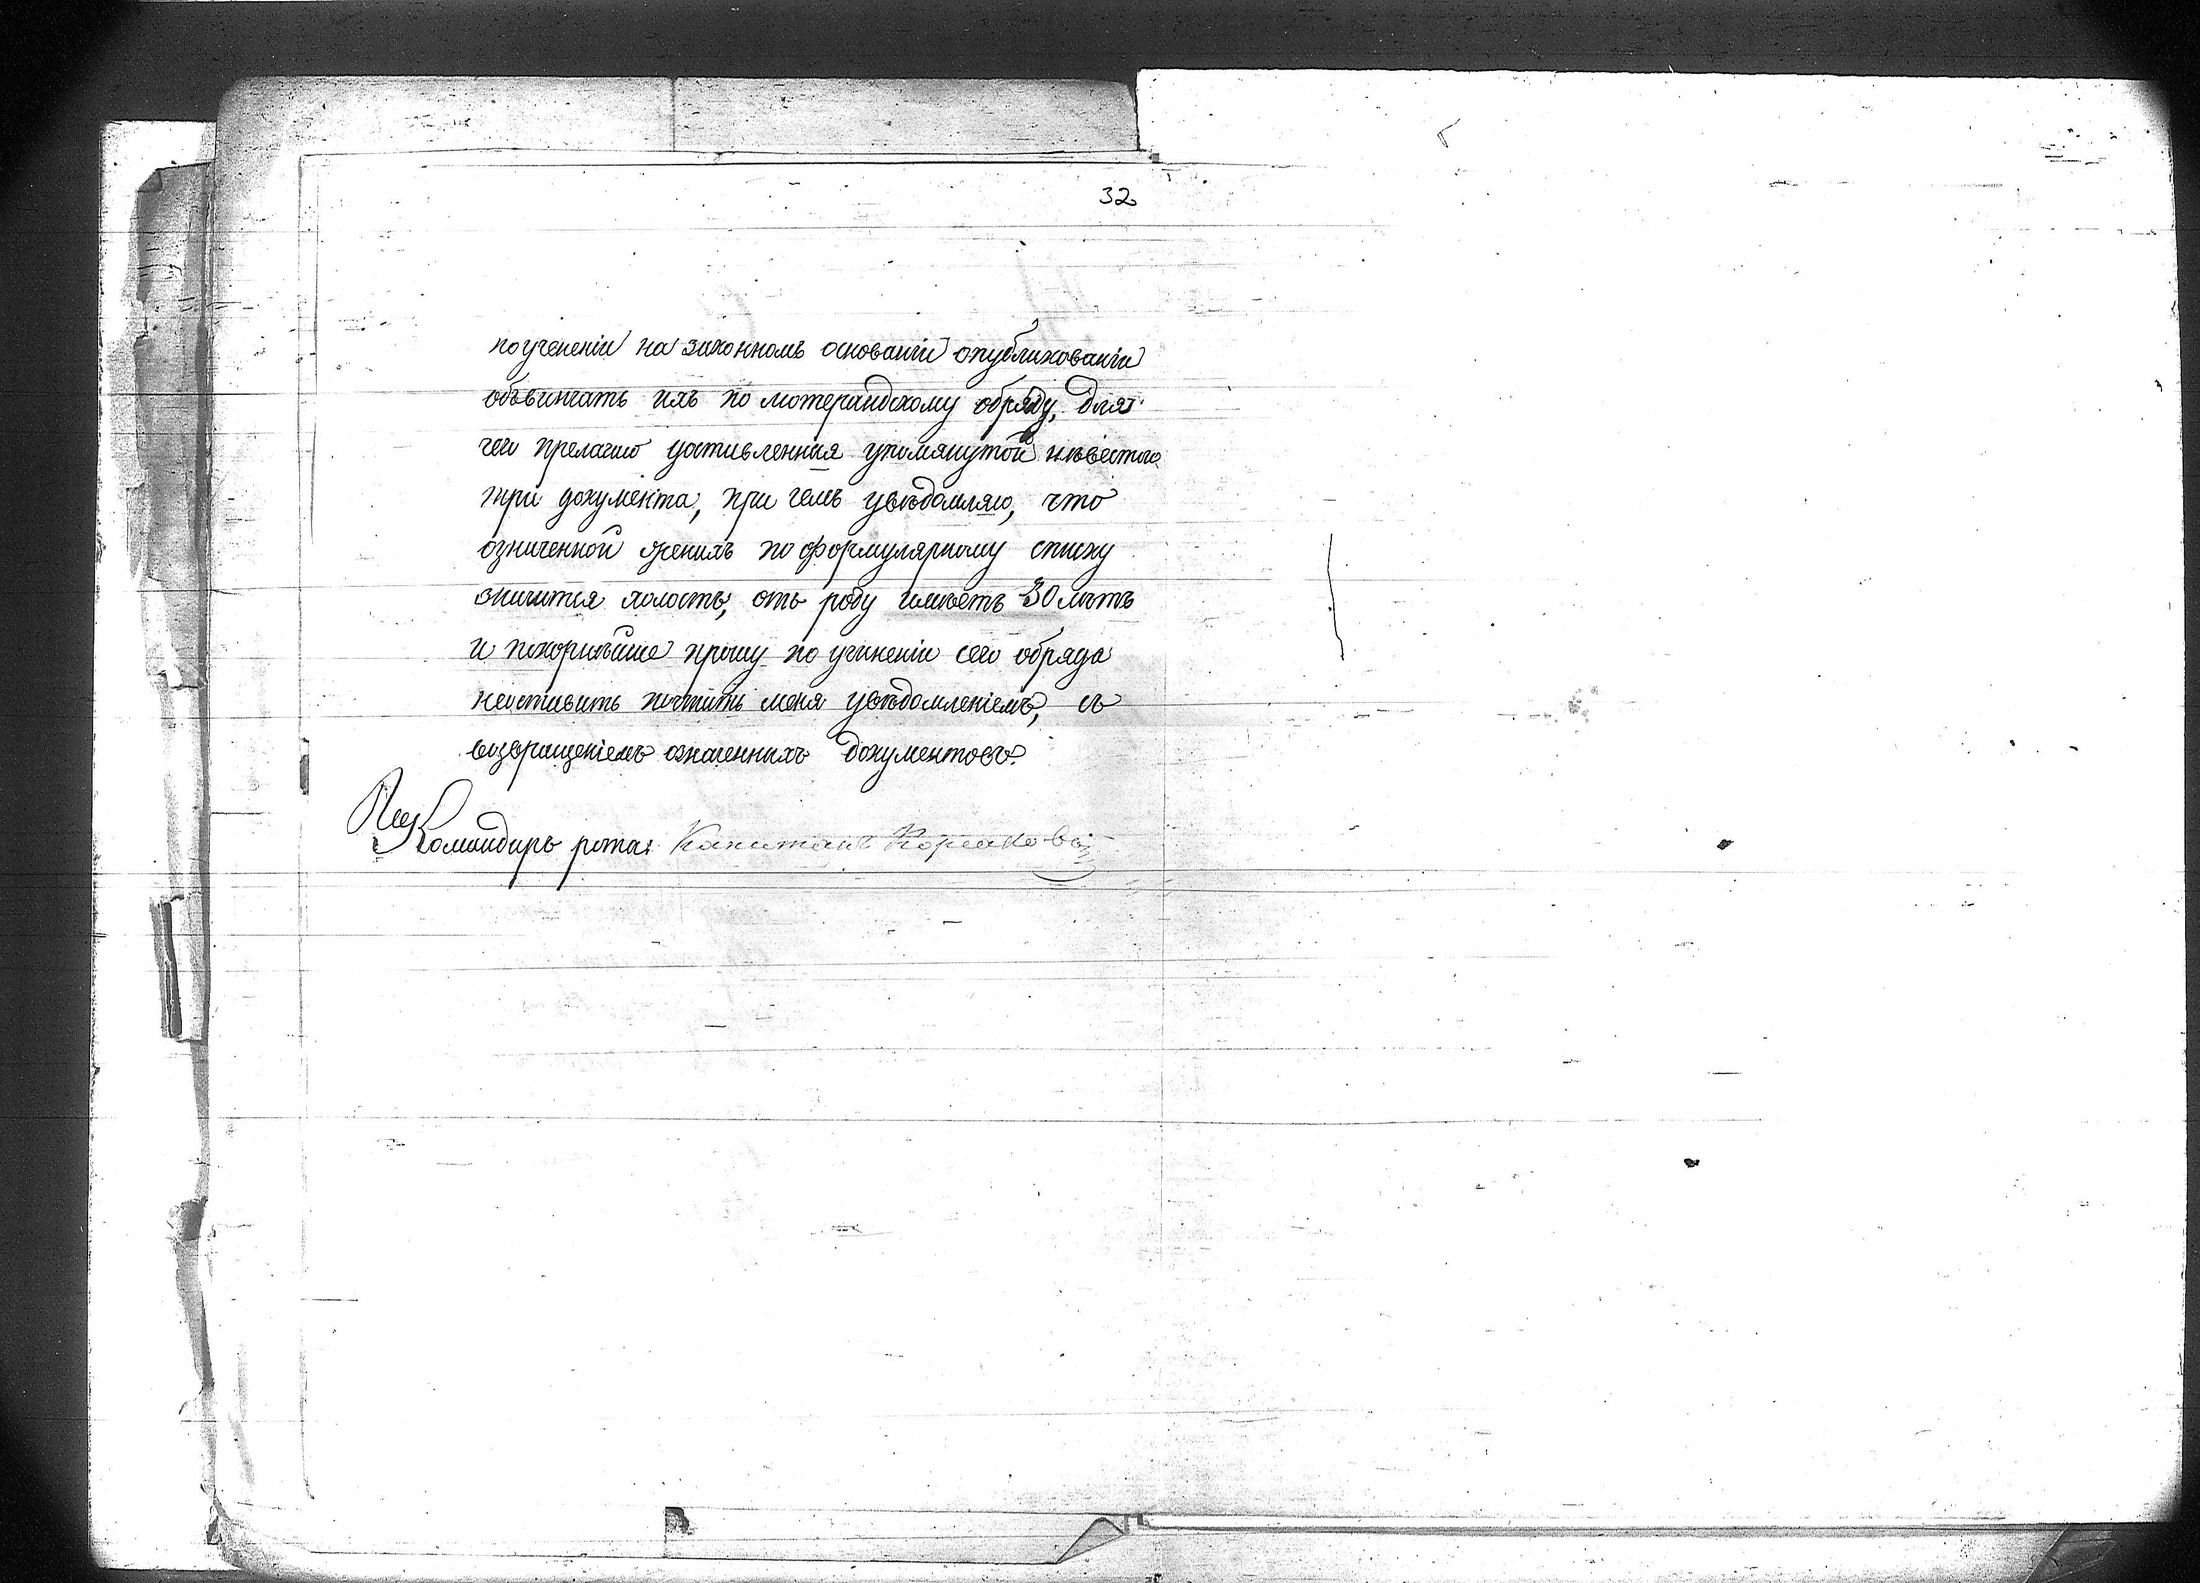 32
по учененіи на законномъ основаніи опубликованіи
обвинчать ихъ по лютерандскому обряду, для
чего прелагаю доставленная упомянутой невестою
три документа, при чемъ увѣдомляю, что
означенной женихъ по формулярному списку
значится холостъ, отъ роду имѣетъ 30 лѣтъ
и покорнѣйше прошу по учиненіи сего обряда
неоставить почтить меня увѣдомленіемъ, съ
возвращеніемъ означенныхъ документовъ.
Командиръ роты Капитанъ Корсаковъ